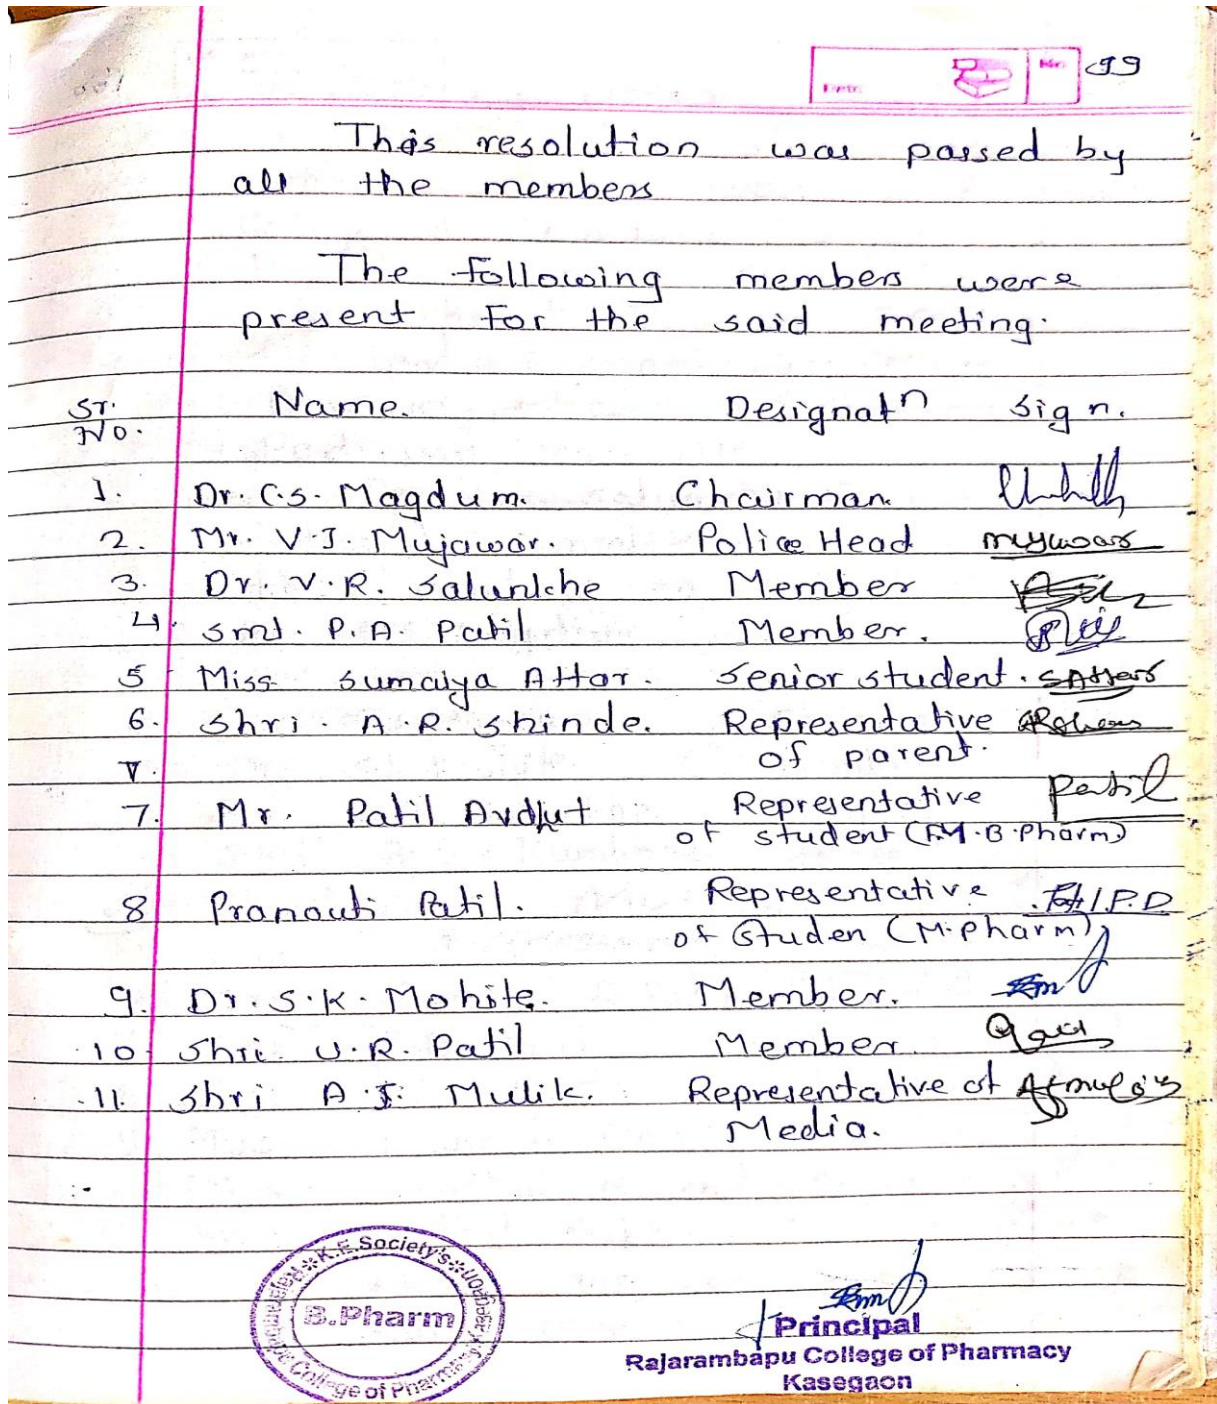 No. 99
This resolution was passed by
all the members
The following members were
present for the said meeting.
Sr. No. Name. Designatn Sign.
1. Dr. C.S. Magdum. Chairman.
2. Mr. V.J. Mujawar. Police Head Mujawar
3. Dr. V.R. Salunkhe Member
4. Smt. P.A. Patil Member.
5 Miss Sumaiya Attar. Senior student. SAttar
6. Shri. A.R. Shinde. Representative
of parent.
7. Mr. Patil Avdhut Representative Patil
of student (F.Y.B.Pharm)
8 Pranauti Patil. Representative
of Studen (M.Pharm)
9. Dr. S.K. Mohite. Member.
10 Shri U.R. Patil Member
11. Shri A.J. Mulik. Representative of
Media.
K.E.Society's
Rajarambapu College of Pharmacy Kasegaon
B.Pharm
Principal
Rajarambapu College of Pharmacy
Kasegaon